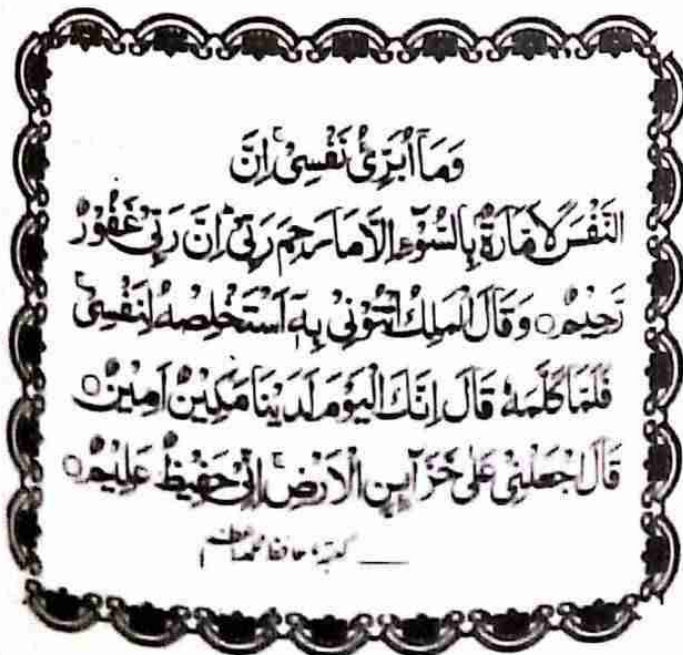 وَمَآ اُبَرِّئُ نَفْسِیْ ۚ اِنَّ
النَّفْسَ لَاَمَّارَةٌۢ بِالسُّوْٓءِ اِلَّا مَا رَحِمَ رَبِّیْ ؕ اِنَّ رَبِّیْ غَفُوْرٌ
رَّحِیْمٌ ○ وَقَالَ الْمَلِكُ ائْتُوْنِیْ بِهٖٓ اَسْتَخْلِصْهُ لِنَفْسِیْ ۚ
فَلَمَّا كَلَّمَهٗ قَالَ اِنَّكَ الْیَوْمَ لَدَیْنَا مَكِیْنٌ اَمِیْنٌ ○
قَالَ اجْعَلْنِیْ عَلٰی خَزَآىِٕنِ الْاَرْضِ ۚ اِنِّیْ حَفِیْظٌ عَلِیْمٌ ○
حافظ